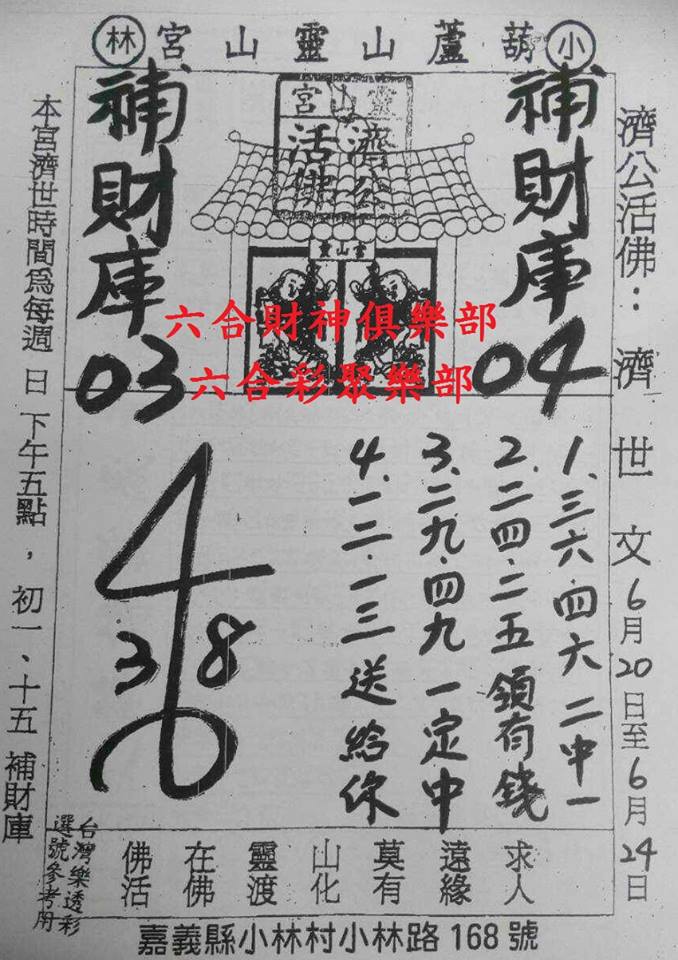 小葫蘆山靈山宮林
濟公活佛：濟世文6月20日至6月24日
補財庫04
靈山宮
濟公
活佛
補財庫03
六合財神俱樂部
六合彩聚樂部
1.三六.四六二中一
2.二四.二五領有錢
3.二九.四九一定中
4.一二.一三送給你
4
3 8
6
本宮濟世時間為每週日下午五點，初一、十五補財庫
佛在靈山莫遠求
活佛渡化有緣人
台灣樂透彩
選號參考用
嘉義縣小林村小林路168號